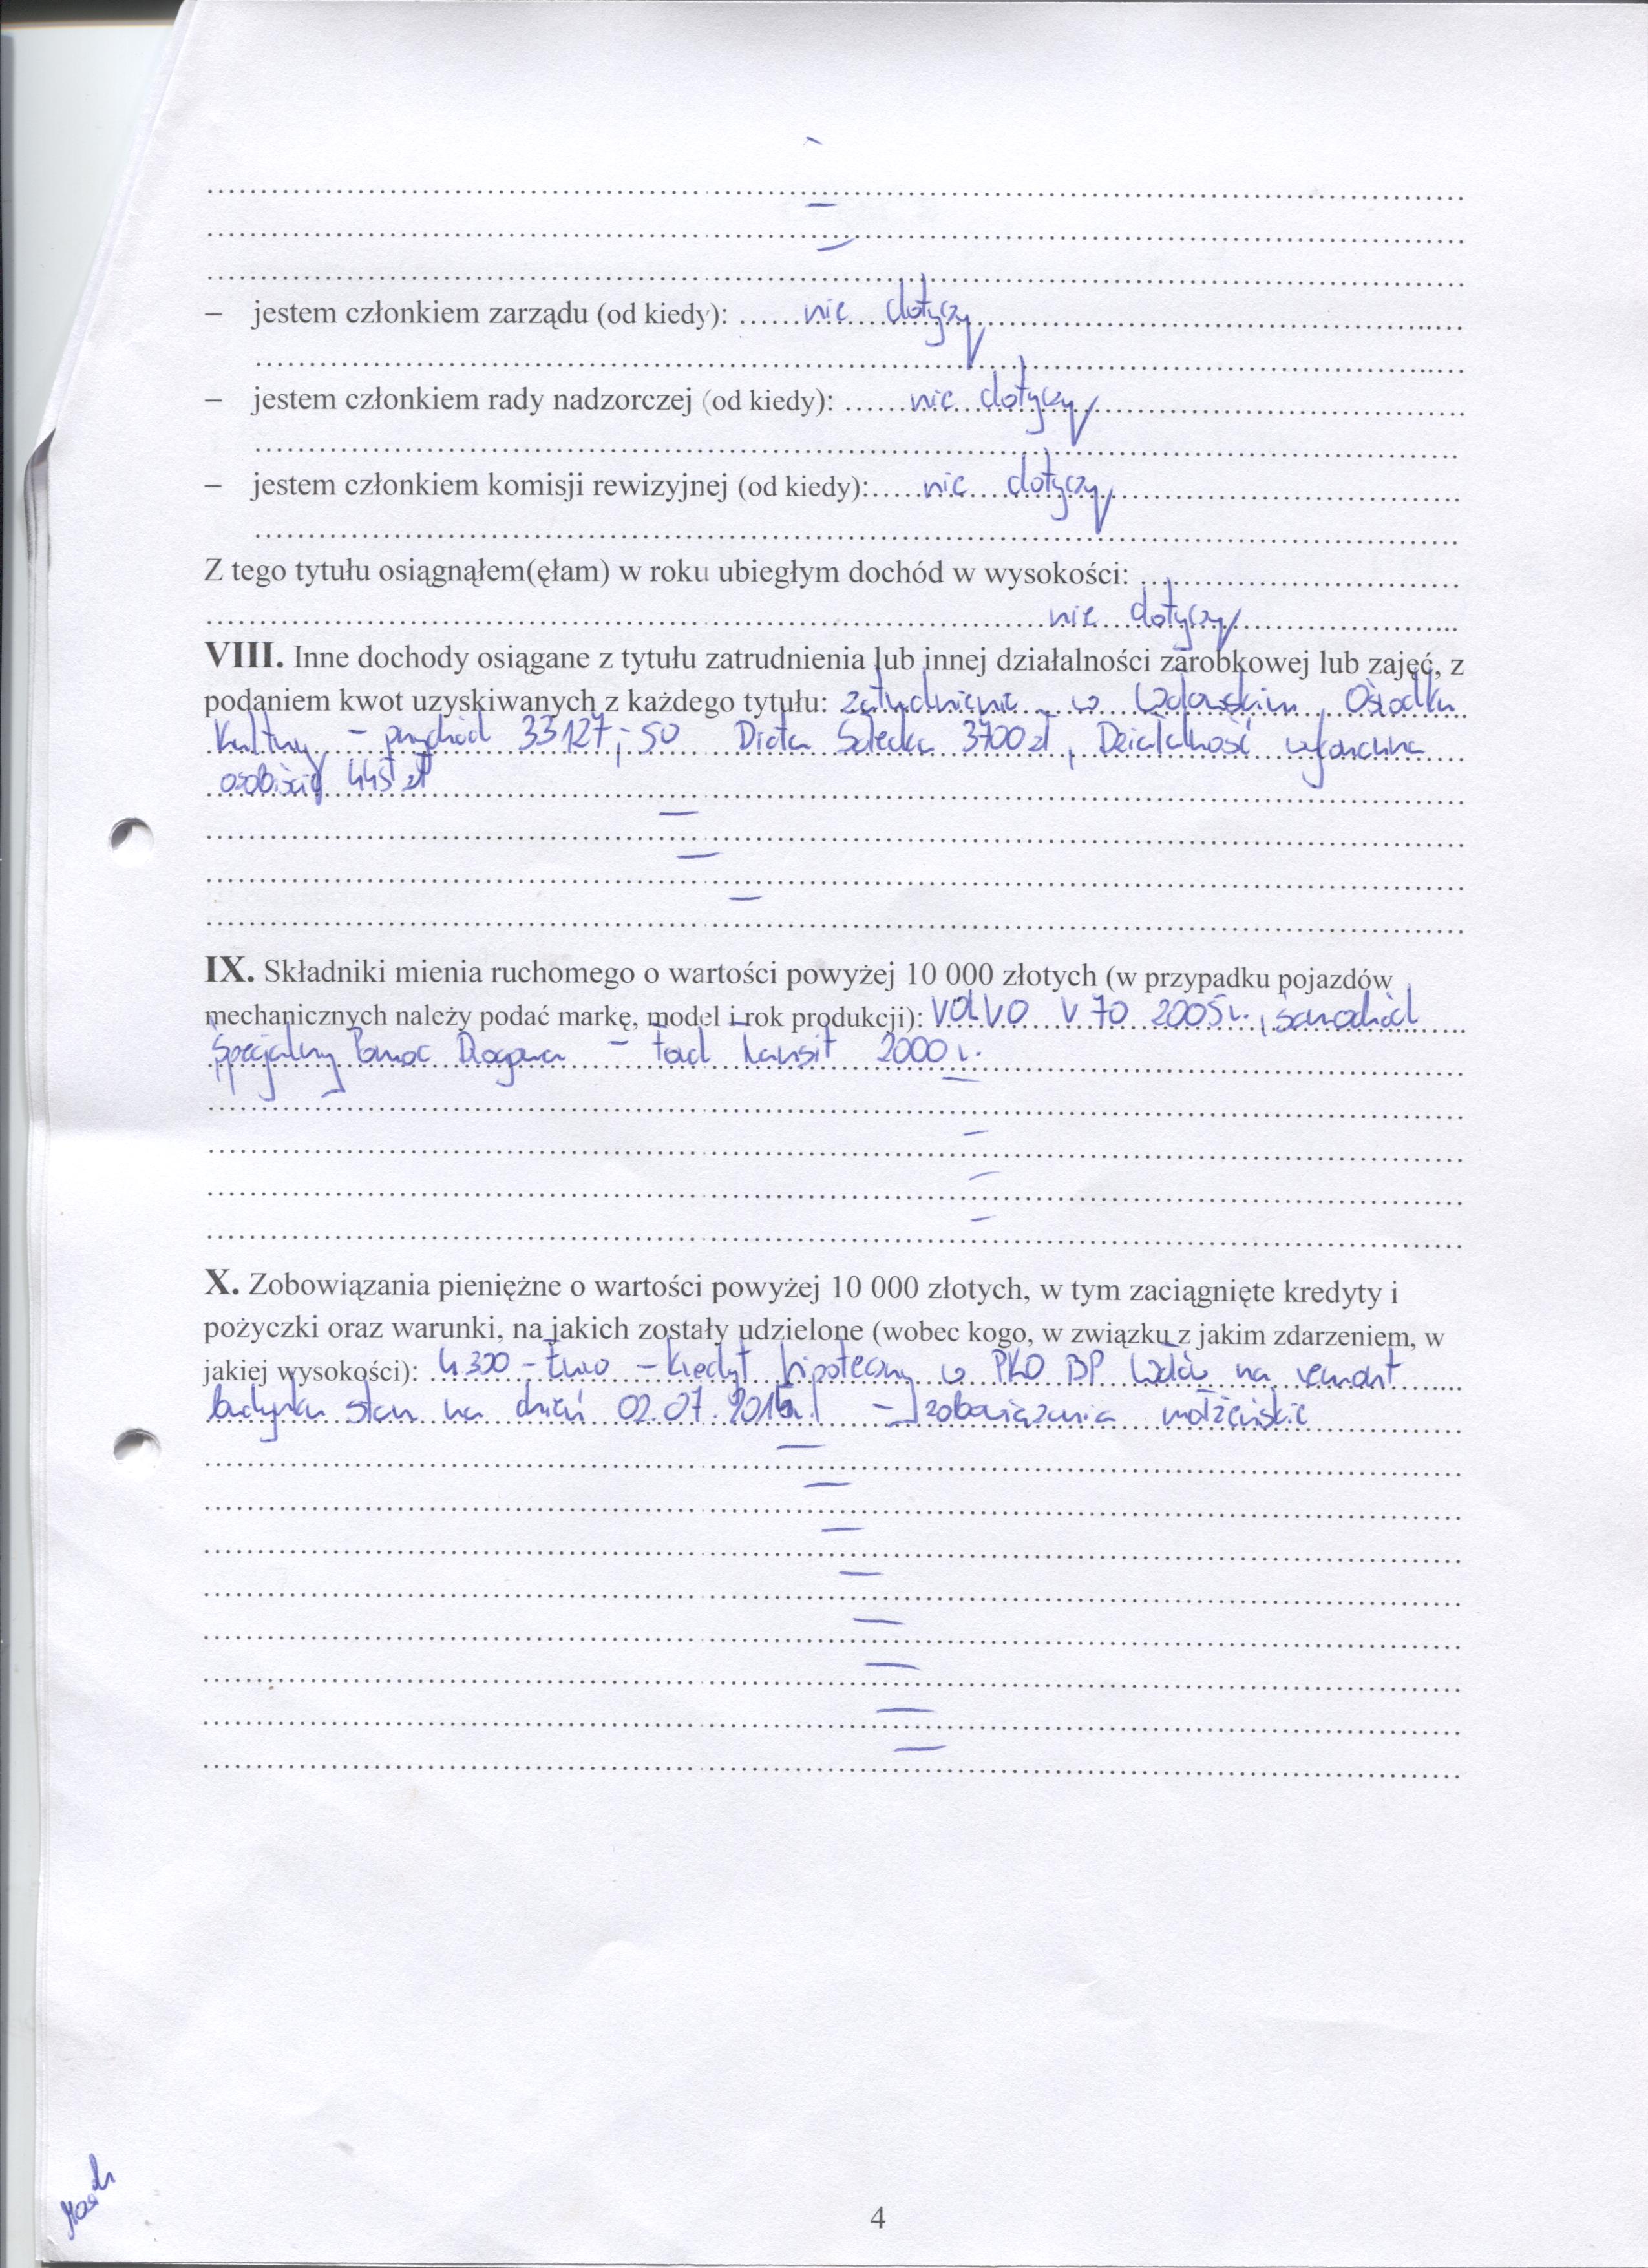 – jestem członkiem zarządu (od kiedy): ......nie dotyczy
– jestem członkiem rady nadzorczej (od kiedy): ......nie dotyczy
– jestem członkiem komisji rewizyjnej (od kiedy):.....nie dotyczy
Z tego tytułu osiągnąłem(ęłam) w roku ubiegłym dochód w wysokości:
nie dotyczy
VIII. Inne dochody osiągane z tytułu zatrudnienia lub innej działalności zarobkowej lub zajęć, z
podaniem kwot uzyskiwanych z każdego tytułu: zatrudnienie w Ośrodku
Kultury - przychód 33127,-50 Dieta Sołecka 3700 zł, Działalność wykonywana
osobiście 445 zł
IX. Składniki mienia ruchomego o wartości powyżej 10 000 złotych (w przypadku pojazdów
mechanicznych należy podać markę, model i rok produkcji): VOLVO V70 2005r., samochód
Specjalny Pomoc Drogowa - Ford Transit 2000 r.
X. Zobowiązania pieniężne o wartości powyżej 10 000 złotych, w tym zaciągnięte kredyty i
pożyczki oraz warunki, na jakich zostały udzielone (wobec kogo, w związku z jakim zdarzeniem, w
jakiej wysokości): 4300 - Euro - Kredyt hipoteczny w PKO BP na remont
budynku stan na dzień 02.07. - zobowiązania małżeńskie
4